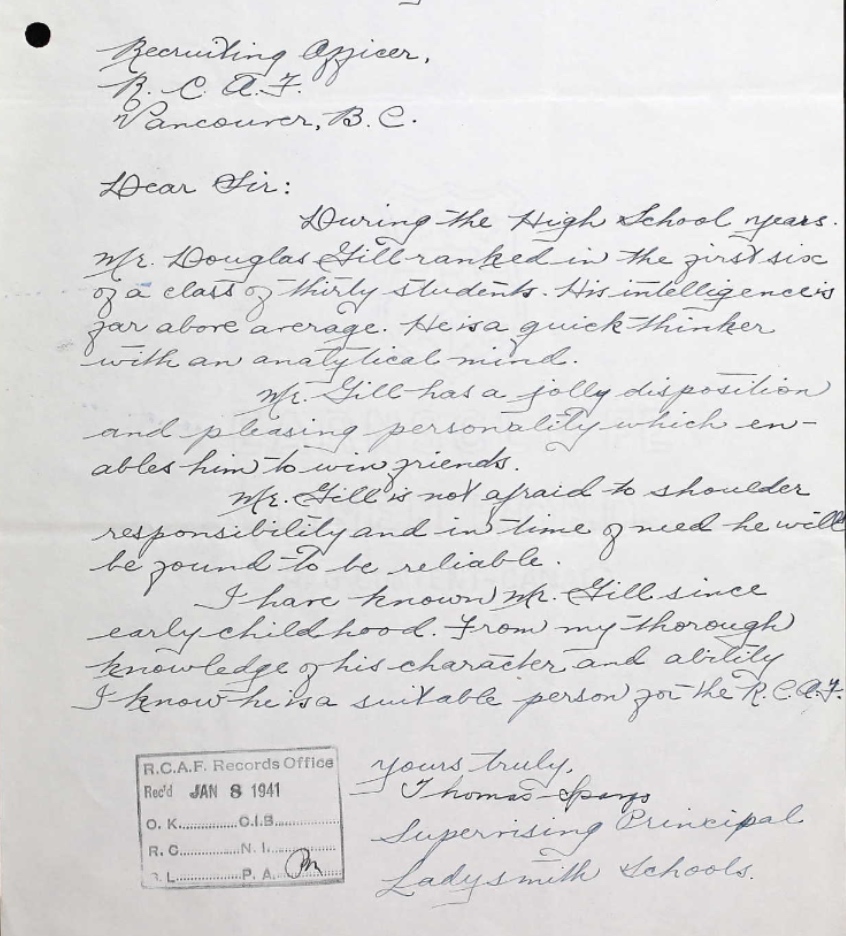 Recruiting Officer,
R. C. A. F.
Vancouver, B. C.
Dear Sir:
During the High School years.
Mr. Douglas Gill ranked in the first six
of a class of thirty students. His intelligence is
far above average. He is a quick thinker
with an analytical mind.
Mr. Gill has a jolly disposition
and pleasing personality which en-
ables him to win friends.
Mr. Gill is not afraid to shoulder
responsibility and in time of need he will
be found to be reliable.
I have known Mr. Gill since
early childhood. From my thorough
knowledge of his character and ability
I know he is a suitable person for the R.C.A.F.
yours truly,
Thomas
Supervising Principal
Ladysmith Schools.
R.C.A.F. Records Office
Rec'd JAN 8 1941
O. K..............C.I.B..............
R. C..............N. I..............
L..............P. A..............